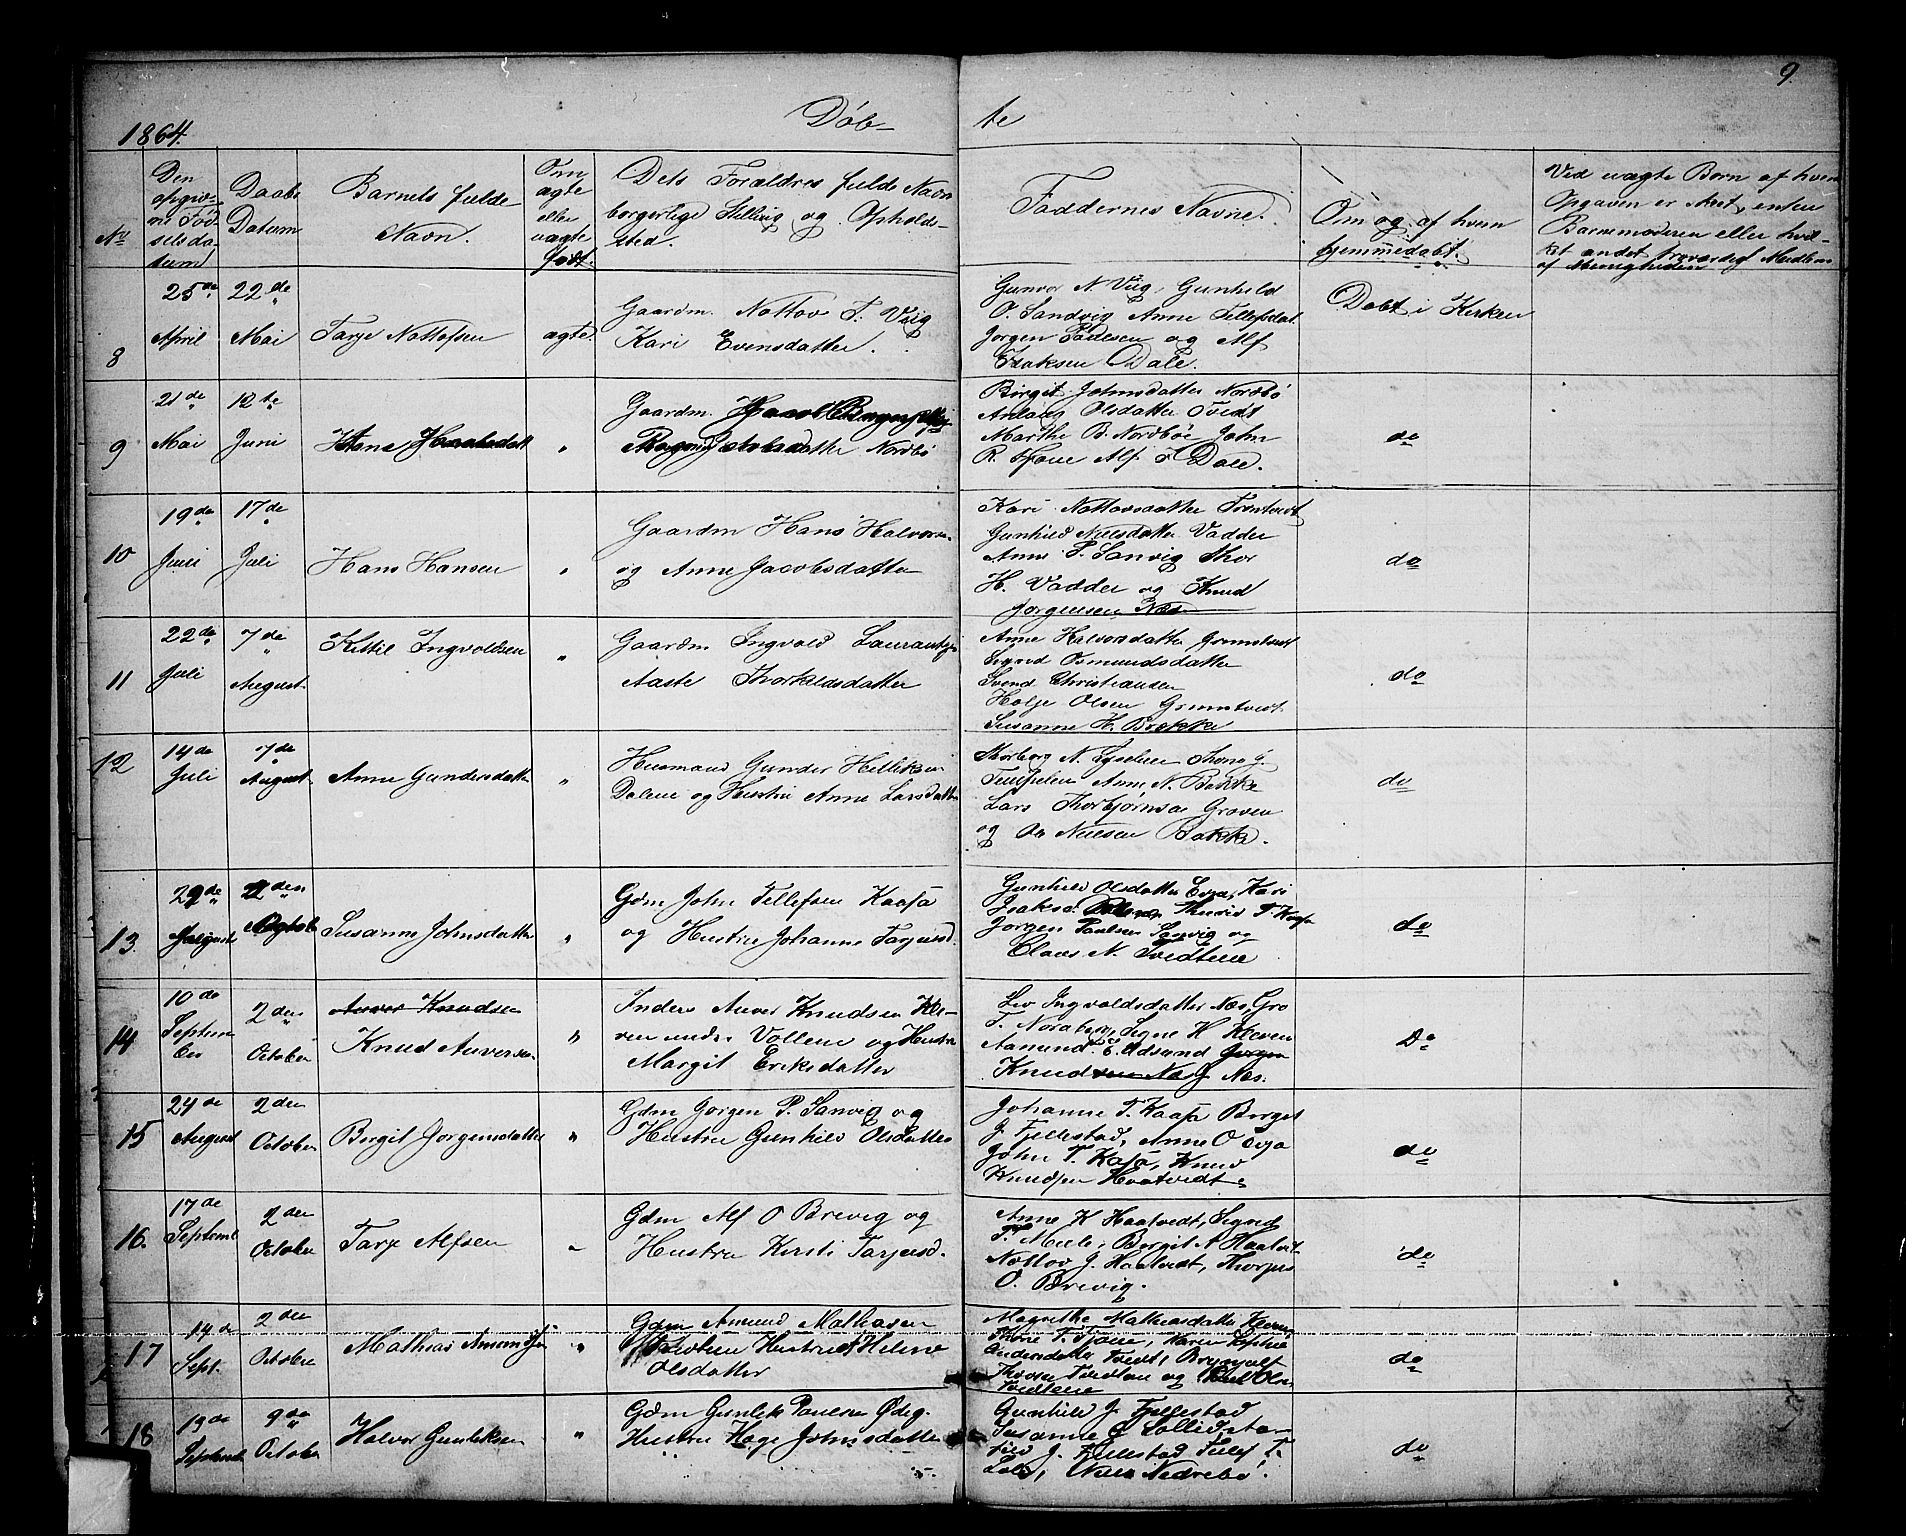 9.
1864.
Døb-
te
No
Den opgiv-
ne Fød-
selsda-
tum
Daabs
Datum
Barnets fulde
Navn.
Om
ægte
eller
uægte
født.
Dets Forældres fulde Navn
borgerlige Stilling og Opholds-
sted.
Faddernes Navne.
Om og af hvem
hjemmedøbt.
Ved uægte Børn af hvem
Opgaven er skeet, enten
Barnemoderen eller hvil-
ket andet troværdigt Medlem
af Menigheden
8
25de
April
22de
Mai
Tarje Nottofsen
ægte.
Gaardm. Nottov T. Vig
Kari Evensdatter.
Gunvor N Viig, Gunhild
O. Sandvig Anne Tellefsdat.
Jørgen Paulsen og Alf
Isaksen Dale.
Døbt i Kirken
9
21de
Mai
12te
Juni
"
Gaardm.
Nordbø
Birgit Johnsdatter Nordbø
Aslaug Olsdatter Tvedt
Marthe B. Nordbøe John
R. Hone Alf I Dale.
do
10
19de
Juni
17de
Juli
Hans Hansen
"
Gaardm Hans Halvorsen
og Anne Jacobsdatter
Kari Nottovsdatter Trontvedt
Gunhild Nielsdatter Vadder
Anne P. Sanvig Thor
H. Vadder og Knud
Jørgensen Næs
do
11
22de
Juli
7de
August
Kittil Ingvoldsen
"
Gaardm Ingvold Laurantzen
Aaste Thorkildsdatter
Anne Halvorsdatter Grimtvedt
Sigrid Osmundsdatter
Svend Christiansen
Holje Olsen Grimtvedt
Susanne H. Bakke
do
12
14de
Juli
7de
August
Anne Gundersdatter
"
Husmand Gunder Helliksen
Dalene og Hustru Anne Larsdatter
Thorborg N. Thone J.
Anne N. Bakke
Lars Thorbjørnsen Graven
og Ole Nielsen Bakke.
do
13.
29de
August
2den
October
Susanne Johnsdatter
"
Gdm John Tellefsen Kaasa
og Hustru Johanne Tarjeisd.
Gunhild Olsdatter Evja, Kari
Isaksd. Thurid T. Kaasa
Jørgen Paulsen Sanvig og
Claus N. Tvedtene
do
14
10de
Septem
ber
2den
October
Anver Knudsen
Knud Anversen
"
Inders Anver Knudsen Kle-
ven under Vollene og Hustru
Margit Eriksdatter
Liv Ingvoldsdatter Næs, Gro
T. Noraberg, Signe H Kleven
Aamund E. Udsund Jørgen
Knudsen Næs J Næs.
Do
15
24de
August
2den
October
Birgit Jørgensdatter
"
Gdm Jørgen P. Sanvig og
Hustru Gunhild Olsdatter
Johanne T. Kaasa Borgit
J. Fjellestad, Anne O Evja
John T. Kasa, Knud
Knudsen Haatvedt.
do
16.
17de
Septemb
2den
October
Tarje Alfsen
"
Gdm Alf O Brevig og
Hustru Kirsti Tarjeisd.
Anne K Haatvedt, Sigrid
T. Mæle, Borgit A Haatvet
Nottov J. Haatvedt, Thorjus
O. Brevig.
do
17
14de
Sept.
2den
October
Mathias Amundsen
"
Gdm Amund Mathiasen
Tvedtene Hustru Helene
Olsdatter
Magrethe Mathiasdatter
Karen
Andersdatter Tvedt, Brynjulf
Thoresen Tvedtene og Olsen
Tvedtene
do
18
13de
Septemb
9de
October
Halvor Gunleksen
"
Gdm Gunlek Paulsen Ødeg.
Hustru Hæge Johnsdatter
Gunhild J. Fjellestad
Susanne
J. Fjellestad Tellef T.
Nils Nedrebø.
do